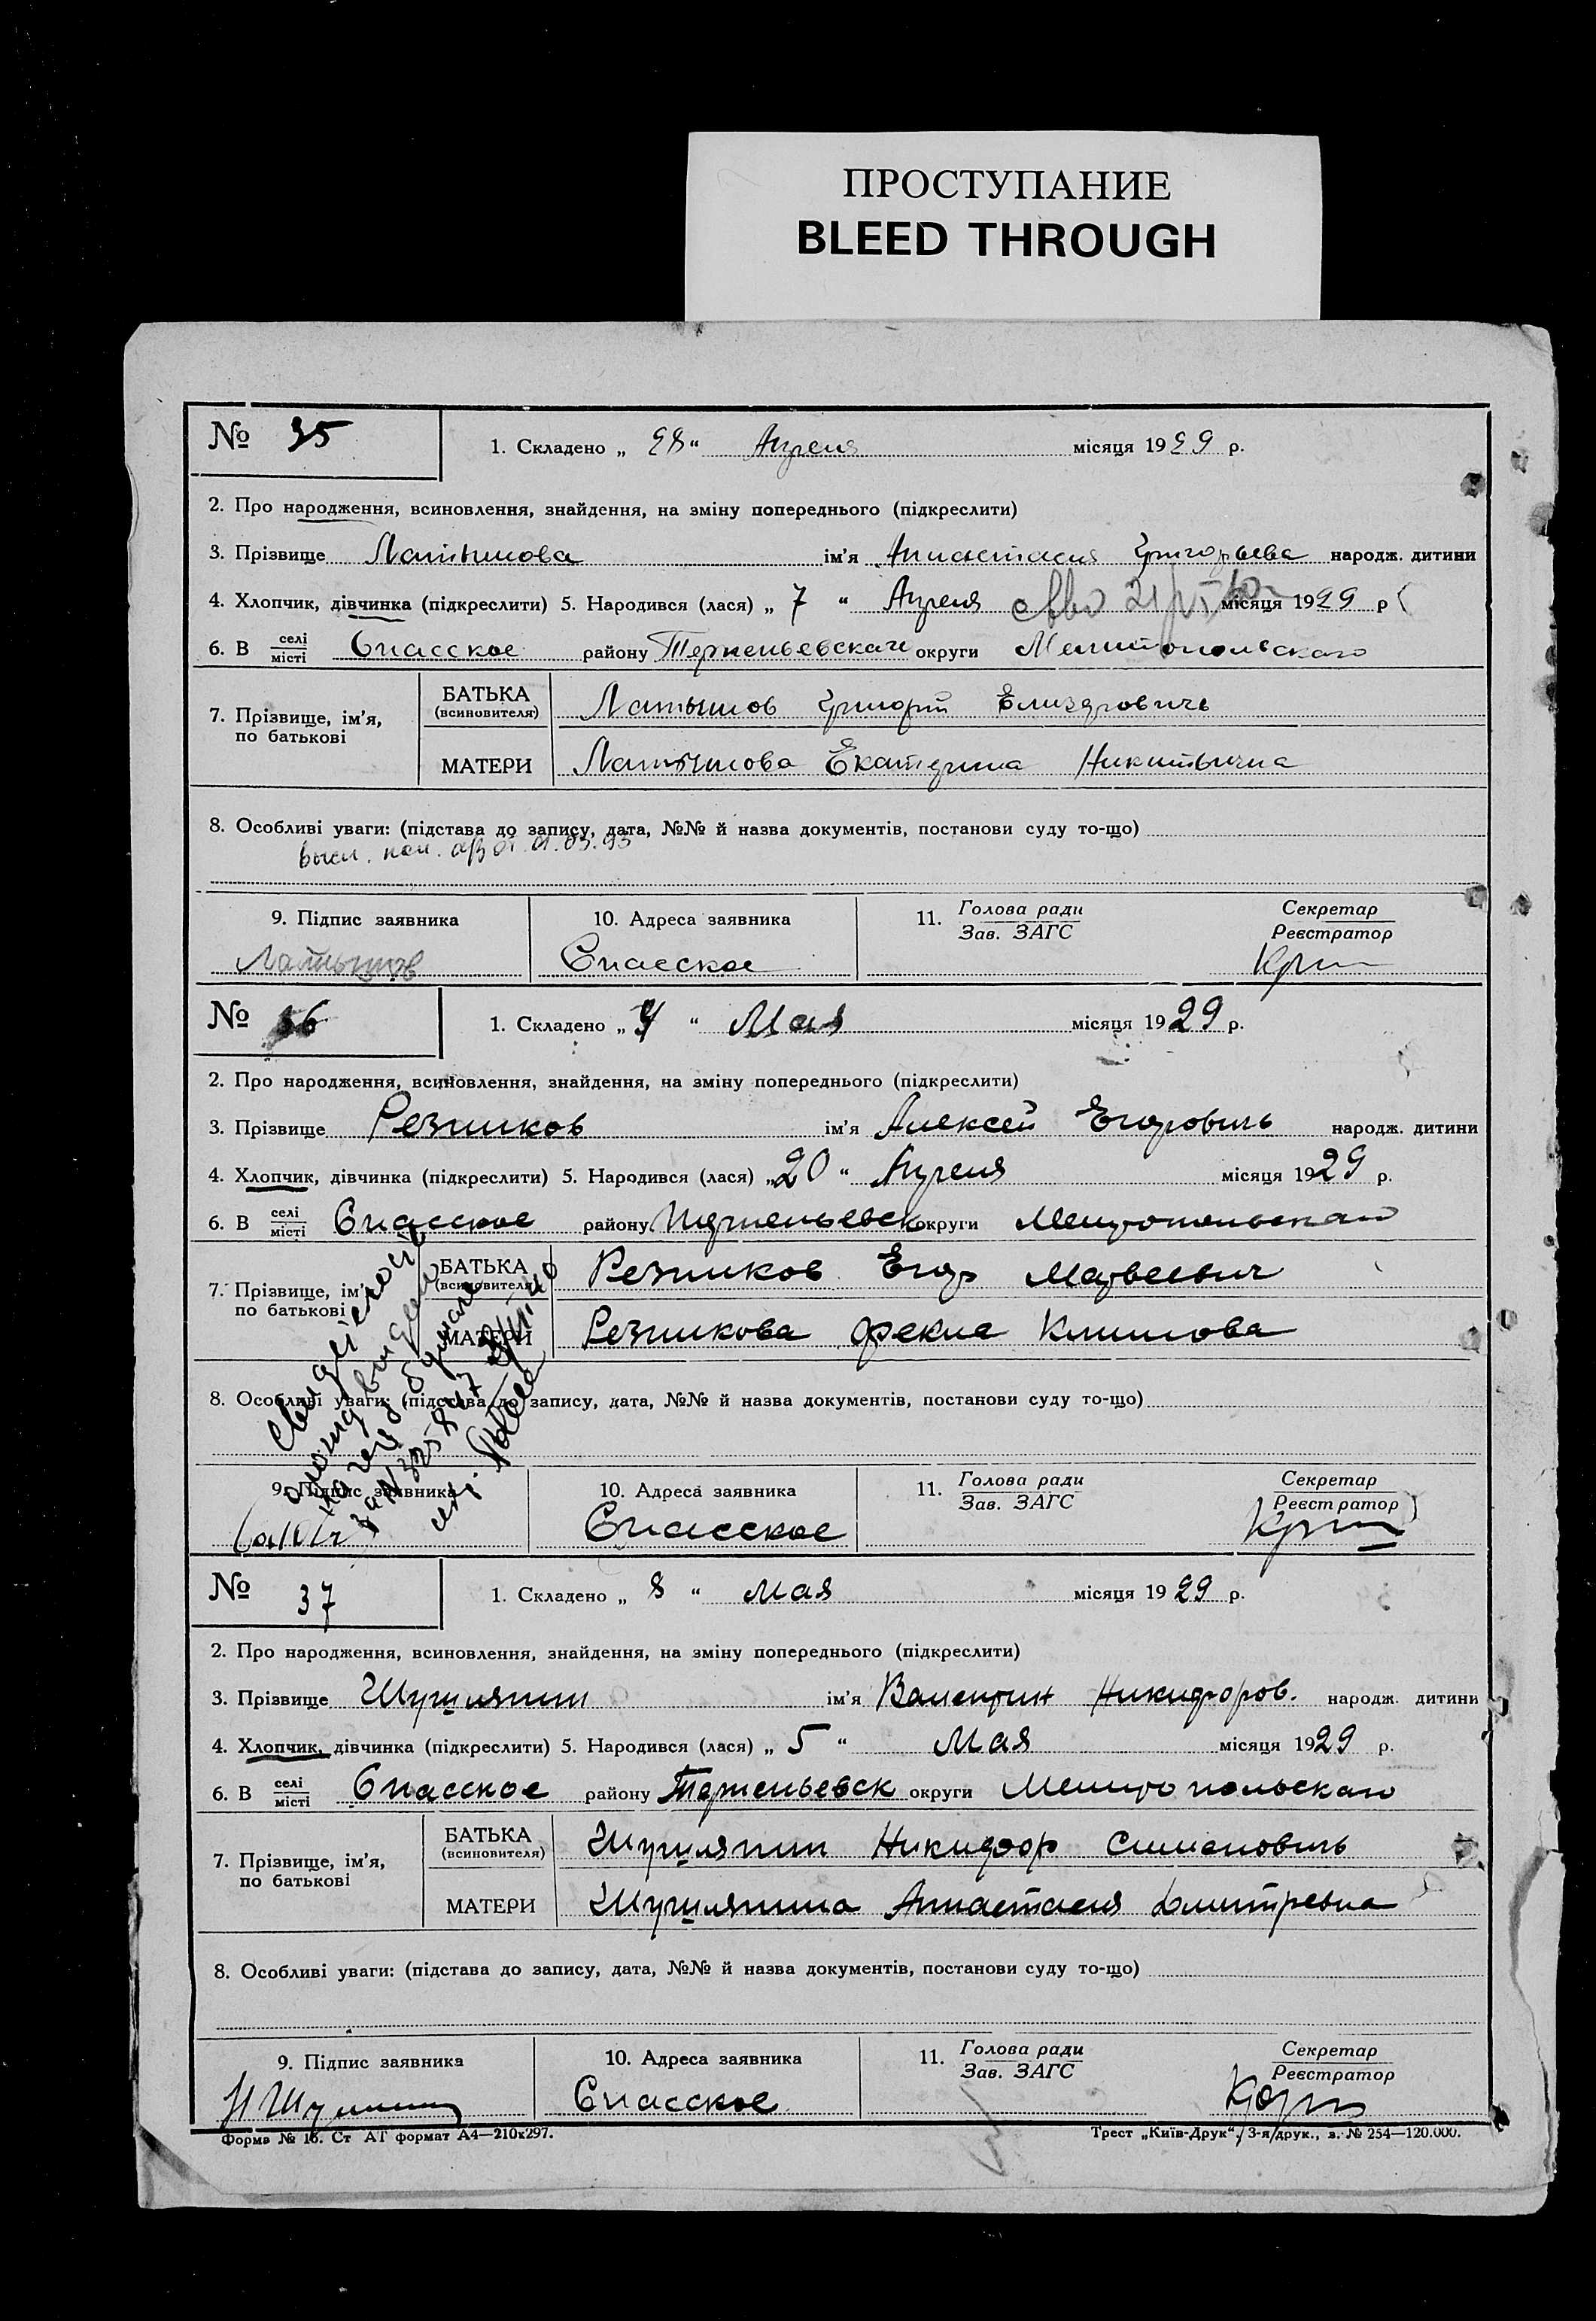 ПРОСТУПАНИЕ
BLEED THROUGH
№ 35 1. Складено „ 28 “ Апреля місяця 1929 р.
2. Про народження, всиновлення, знайдення, на зміну попереднього (підкреслити)
3. Прізвище Латышова ім'я Анастасия Григорьева народж. дитини
4. Хлопчик, дівчинка (підкреслити) 5. Народився (лася) „ 7 “ Апреля місяця 1929 р
6. В селі/місті Спасское району Терпеньевскаго округи Мелитопольскаго
7. Прізвище, ім'я, по батькові
БАТЬКА (всиновителя) Латышов Григорий Елизарович
МАТЕРИ Латышова Екатерина Никитична
8. Особливі уваги: (підстава до запису, дата, №№ й назва документів, постанови суду то-що)
9. Підпис заявника 10. Адреса заявника 11. Голова ради/Зав. ЗАГС Секретар/Реєстратор
Латышов Спасское
№ 36 1. Складено „ “ Мая місяця 1929 р.
2. Про народження, всиновлення, знайдення, на зміну попереднього (підкреслити)
3. Прізвище Резников ім'я Алексей Егорович народж. дитини
4. Хлопчик, дівчинка (підкреслити) 5. Народився (лася) „ 20 “ Апреля місяця 1929 р.
6. В селі/місті Спасское району Терпеньевск округи Мелитопольскаго
7. Прізвище, ім'я, по батькові
БАТЬКА (всиновителя) Резников Егор Матвеевич
МАТЕРИ Резникова Фекла Климова
8. Особливі уваги: (підстава до запису, дата, №№ й назва документів, постанови суду то-що)
9. Підпис заявника 10. Адреса заявника 11. Голова ради/Зав. ЗАГС Секретар/Реєстратор
Спасское
№ 37 1. Складено „ 8 “ мая місяця 1929 р.
2. Про народження, всиновлення, знайдення, на зміну попереднього (підкреслити)
3. Прізвище Шушляпин ім'я Валентин Никифоров. народж. дитини
4. Хлопчик, дівчинка (підкреслити) 5. Народився (лася) „ 5 “ Мая місяця 1929 р.
6. В селі/місті Спасское району Терпеньевск округи Мелитопольскаго
7. Прізвище, ім'я, по батькові
БАТЬКА (всиновителя) Шушляпин Никифор Симонович
МАТЕРИ Шушляпина Анастасия Дмитревна
8. Особливі уваги: (підстава до запису, дата, №№ й назва документів, постанови суду то-що)
9. Підпис заявника 10. Адреса заявника 11. Голова ради/Зав. ЗАГС Секретар/Реєстратор
Спасское
Форма № 16. Ст АТ формат А4—210х297. Трест „Київ-Друк“, 3-я друк., з. № 254—120.000.